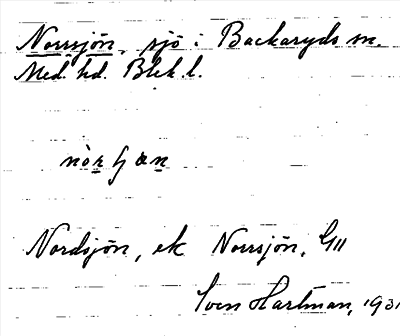 Norrsjön, sjö i Backaryds sn.
Med. hd. Blek. l.
Nordsjön, ek Norrsjön, G11
Sven Hartman, 1931